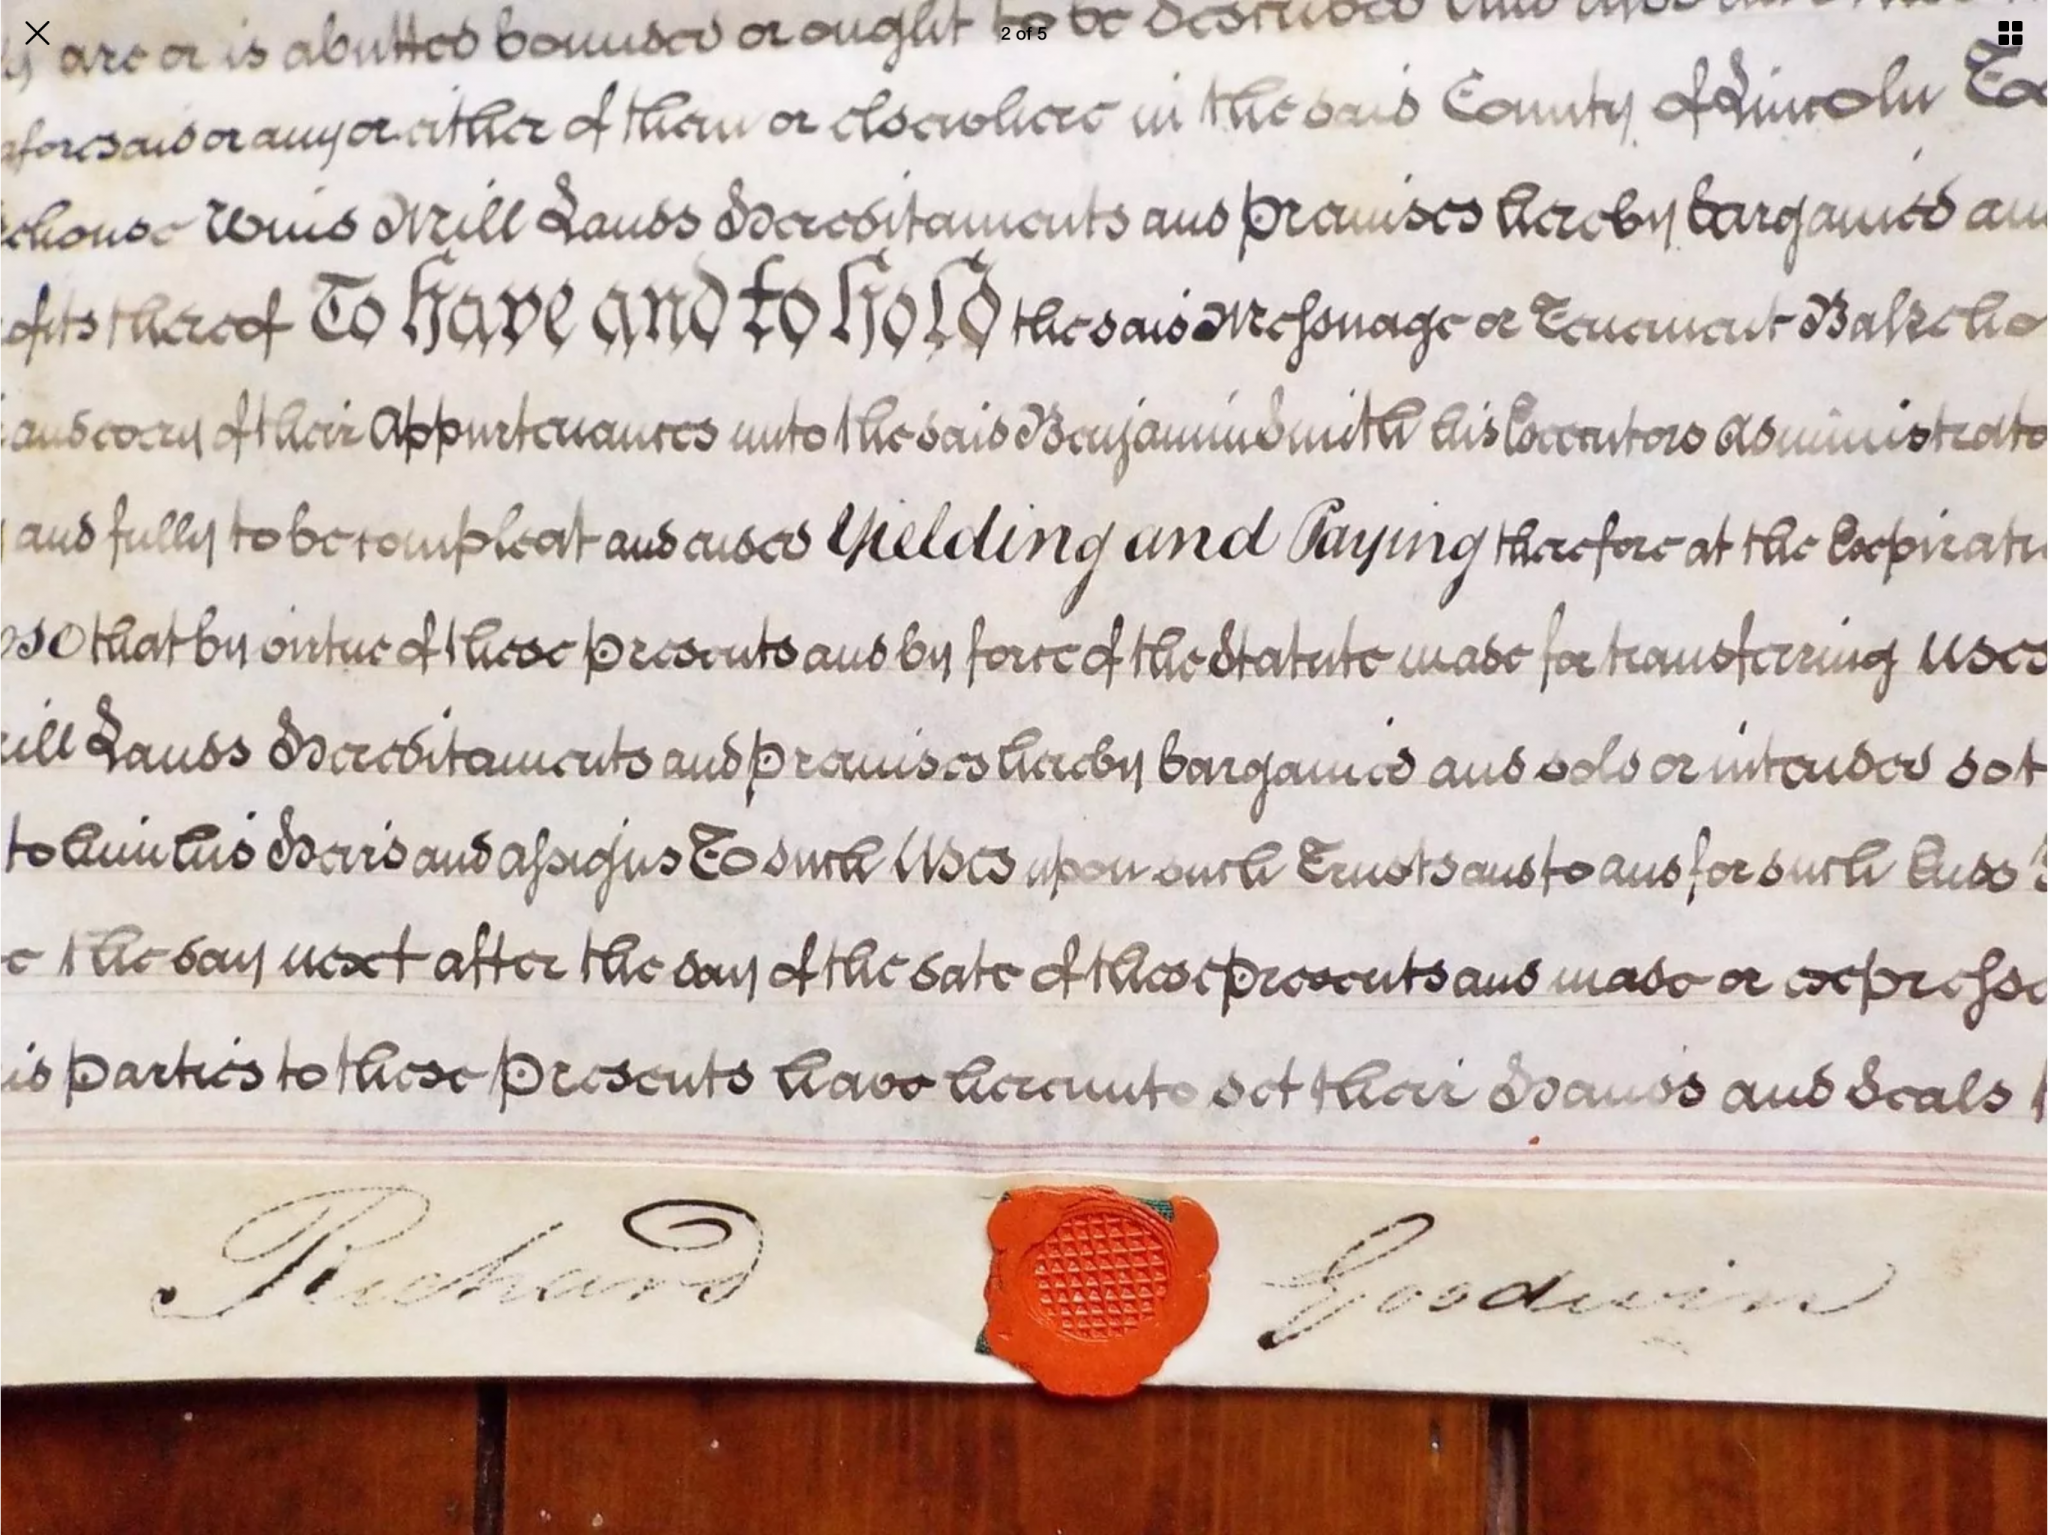 2 of 5
are or is abutted bounded or ought to be described And also
aforesaid or any or either of them or elsewhere in the said County of Lincoln
Wind Mill Lands Hereditaments and premises hereby bargained
thereof To have and to hold the said Messuage or Tenement
and every of their Appurtenances unto the said Benjamin Smith his Executors
and fully to be compleat and ended Yielding and Paying therefore at the
that by virtue of these presents and by force of the Statute made for transferring Uses
Lands Hereditaments and premises hereby bargained and sold or intended so
to him his Heirs and assigns To such Uses upon such Trusts and to and for such Ends
the day next after the day of the date of these presents and made or
parties to these presents have hereunto set their Hands and Seals
Richard Goodwin